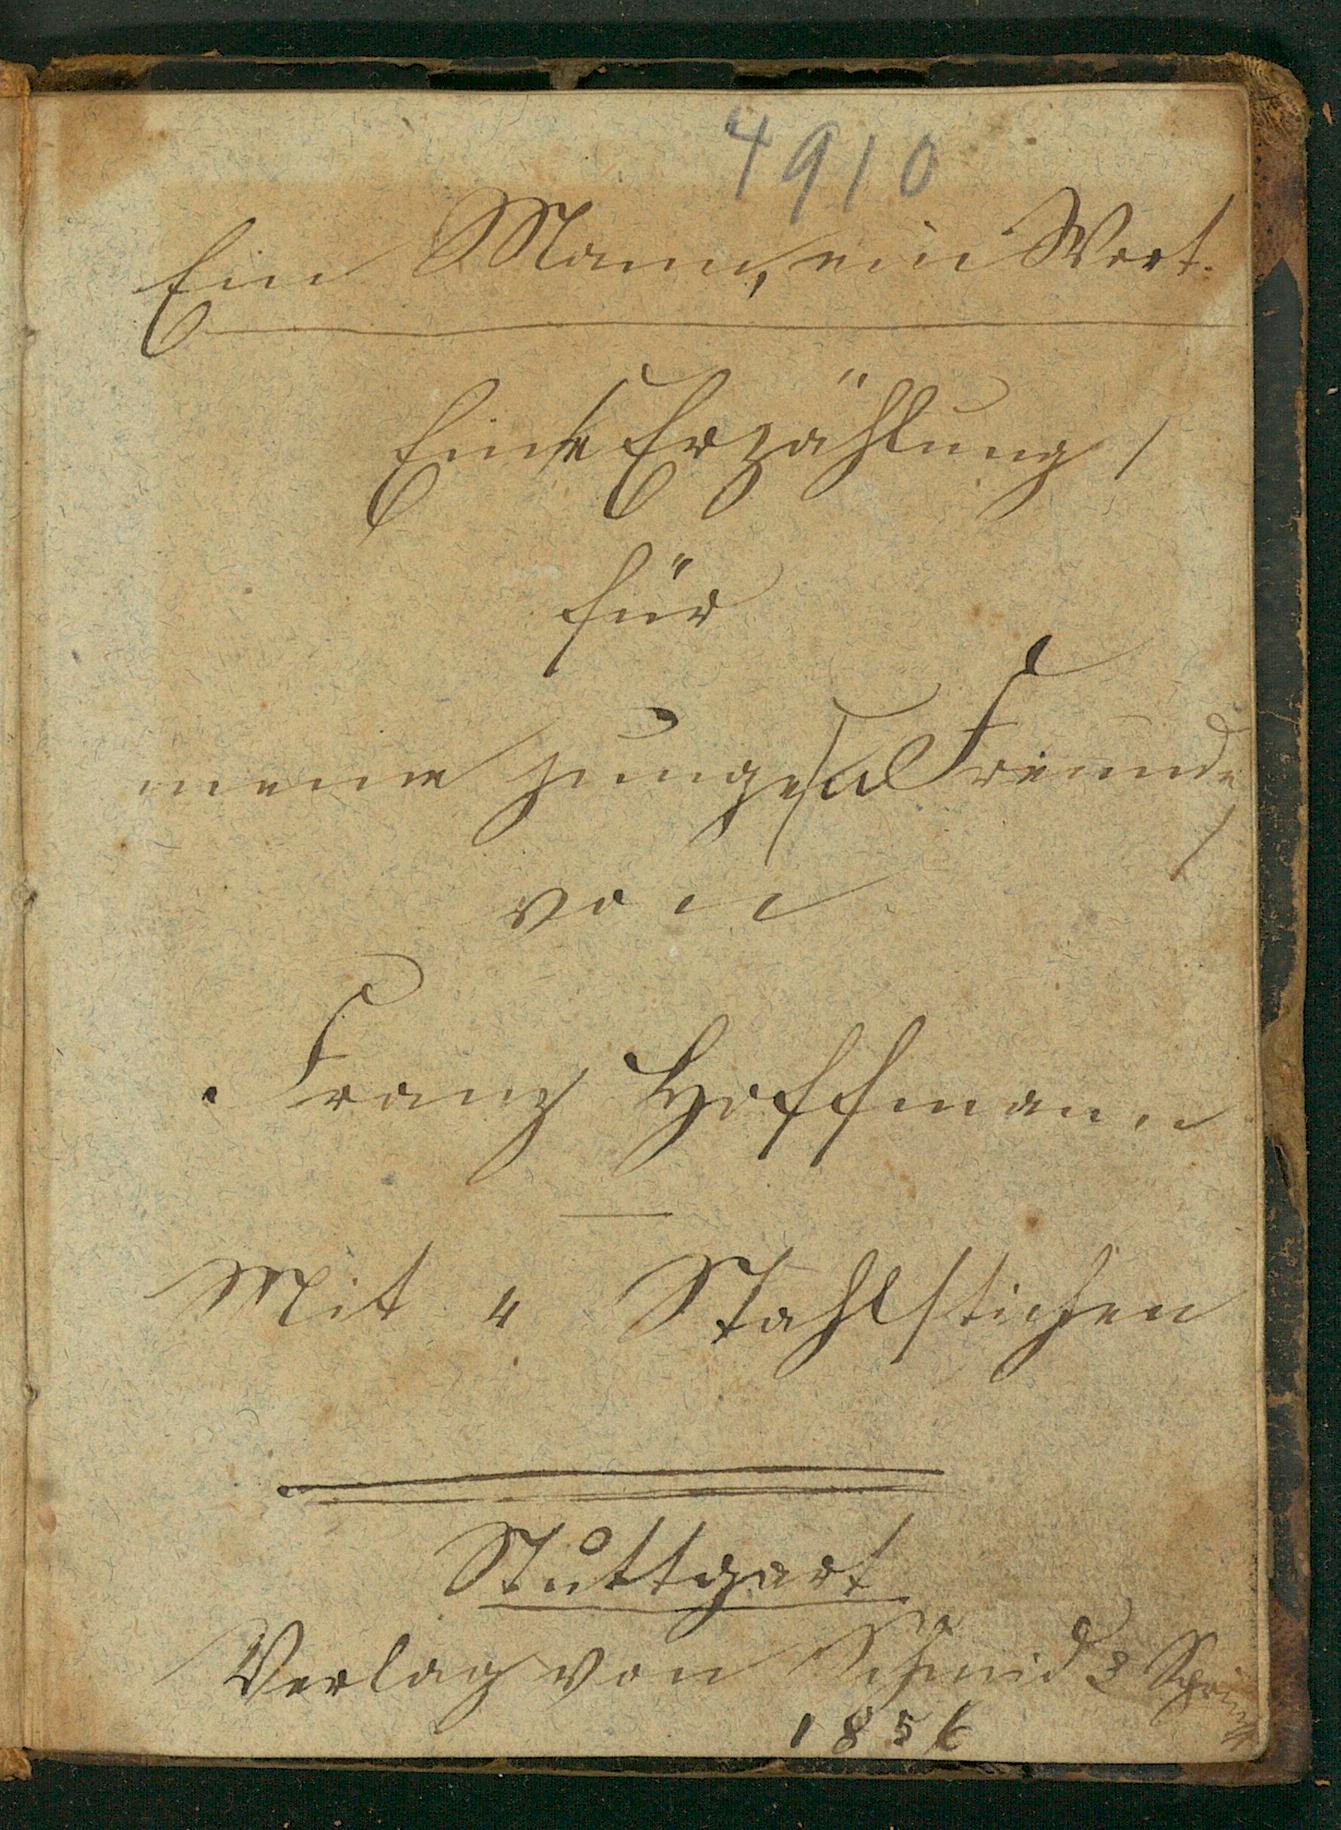 4910
Ein Mann, ein Wort.
Eine Erzählung
für
meine jungen Freunde
von
Franz Hoffmann
Mit 4 Stahlstichen
Stuttgart
Verlag von Schmid & Spring
1856